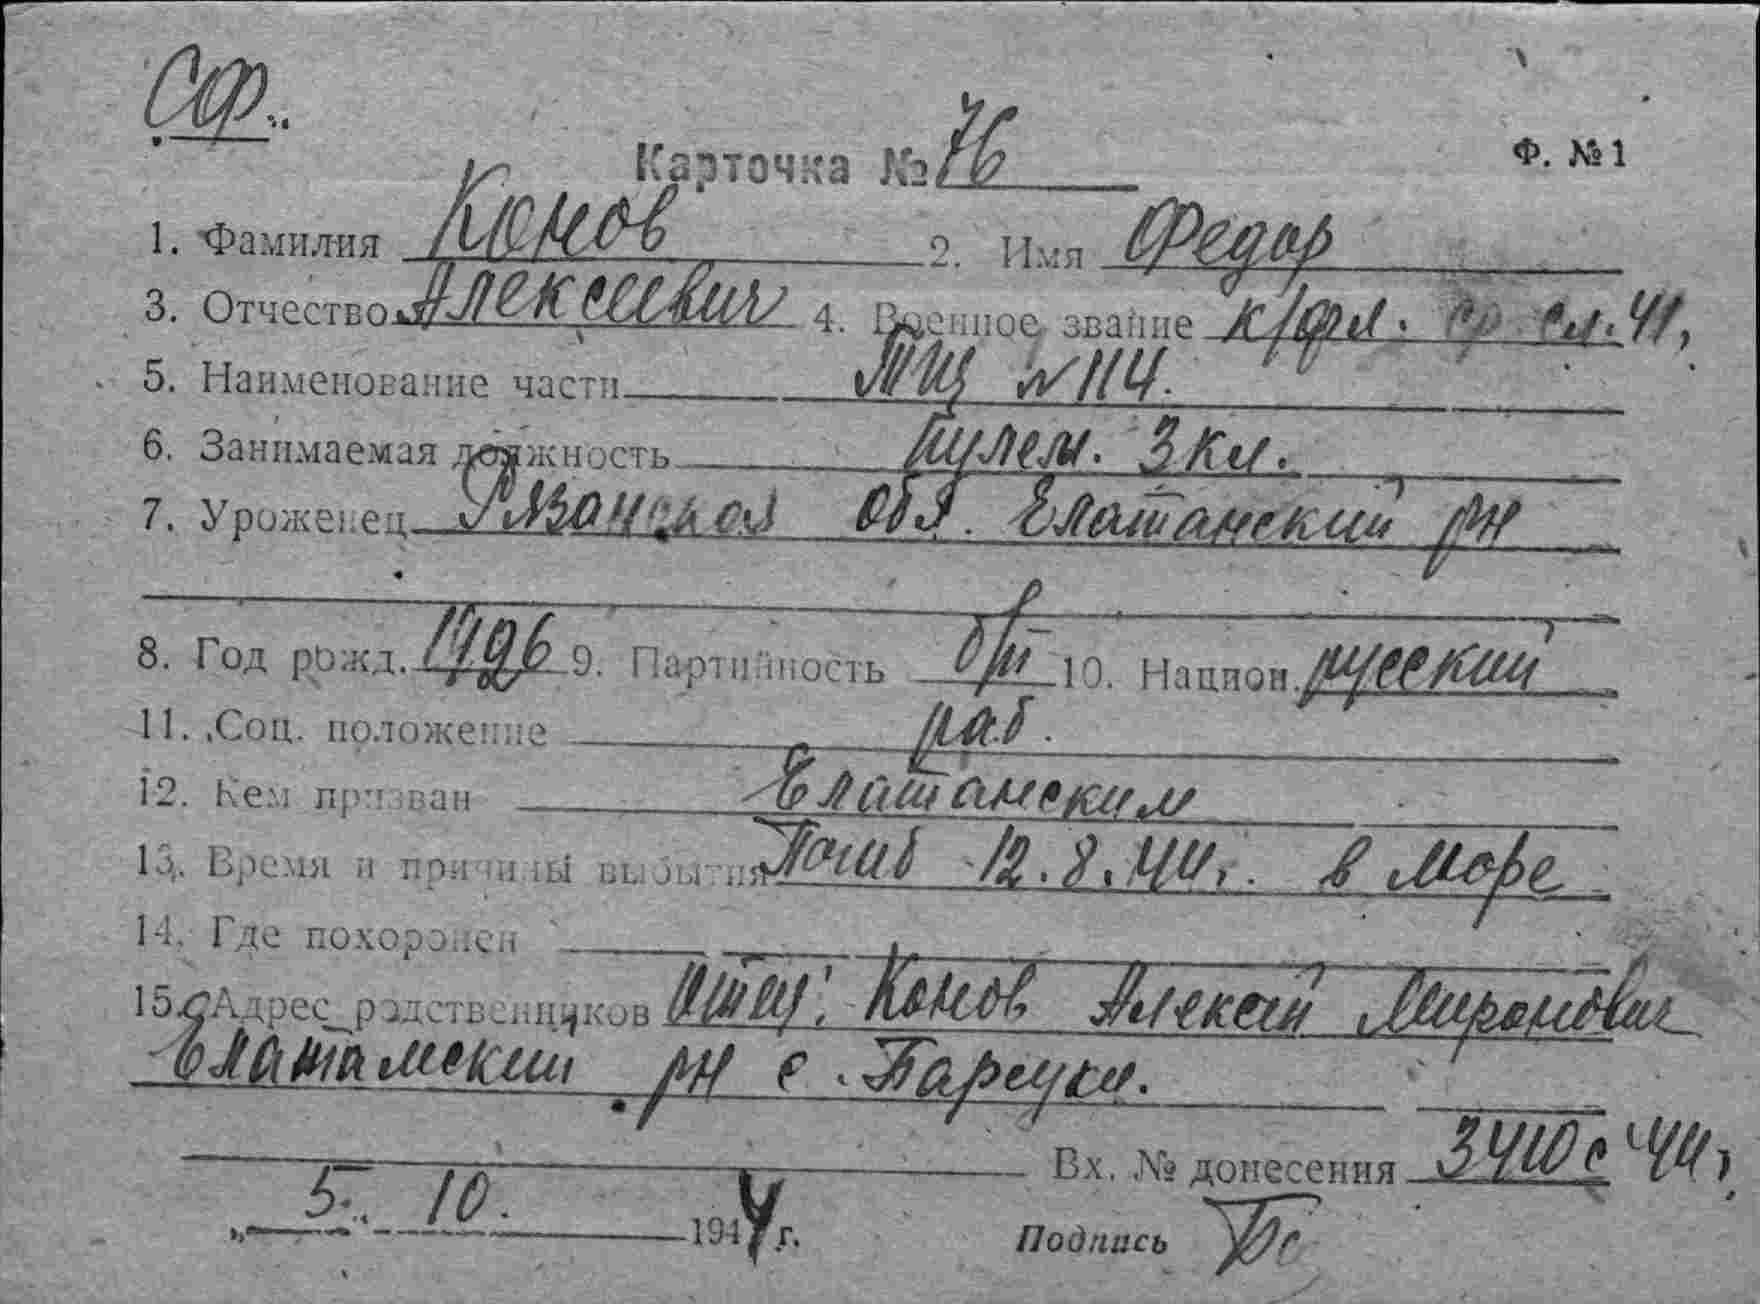 СФ..
Карточка № 76 Ф. №1
1. Фамилия Конов 2. Имя Федор
3. Отчество Алексеевич 4. Военное звание к/фл. ср сл. 41,
5. Наименование части ТЩ №114.
6. Занимаемая должность пулем. 3 кл.
7. Уроженец Рязанская обл. Елатанский рн
8. Год рожд. 1926 9. Партийность б/п 10. Национ. русский
11. Соц. положение раб.
12. Кем призван Елатанским
13. Время и причины выбытия Погиб 12.8.44г. в море
14. Где похоронен
15. Адрес родственников Отец: Конов Алексей Миронович
Елатамский рн с. Барсуки.
Вх. № донесения 3410с 44г
„ 5. 10. 1944 г. Подпись